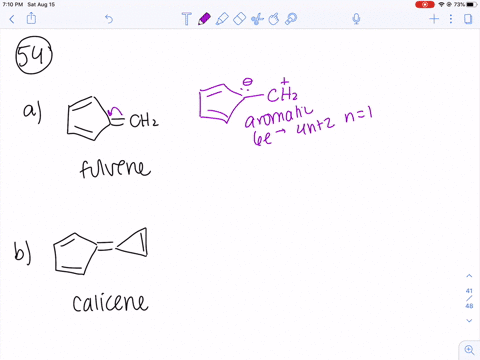 7:10 PM Sat Aug 15
73%
54
a)
CH2
fulvene
⊖
+
CH2
aromatic
6e⁻ 4n+2 n=1
b)
calicene
41
/
48